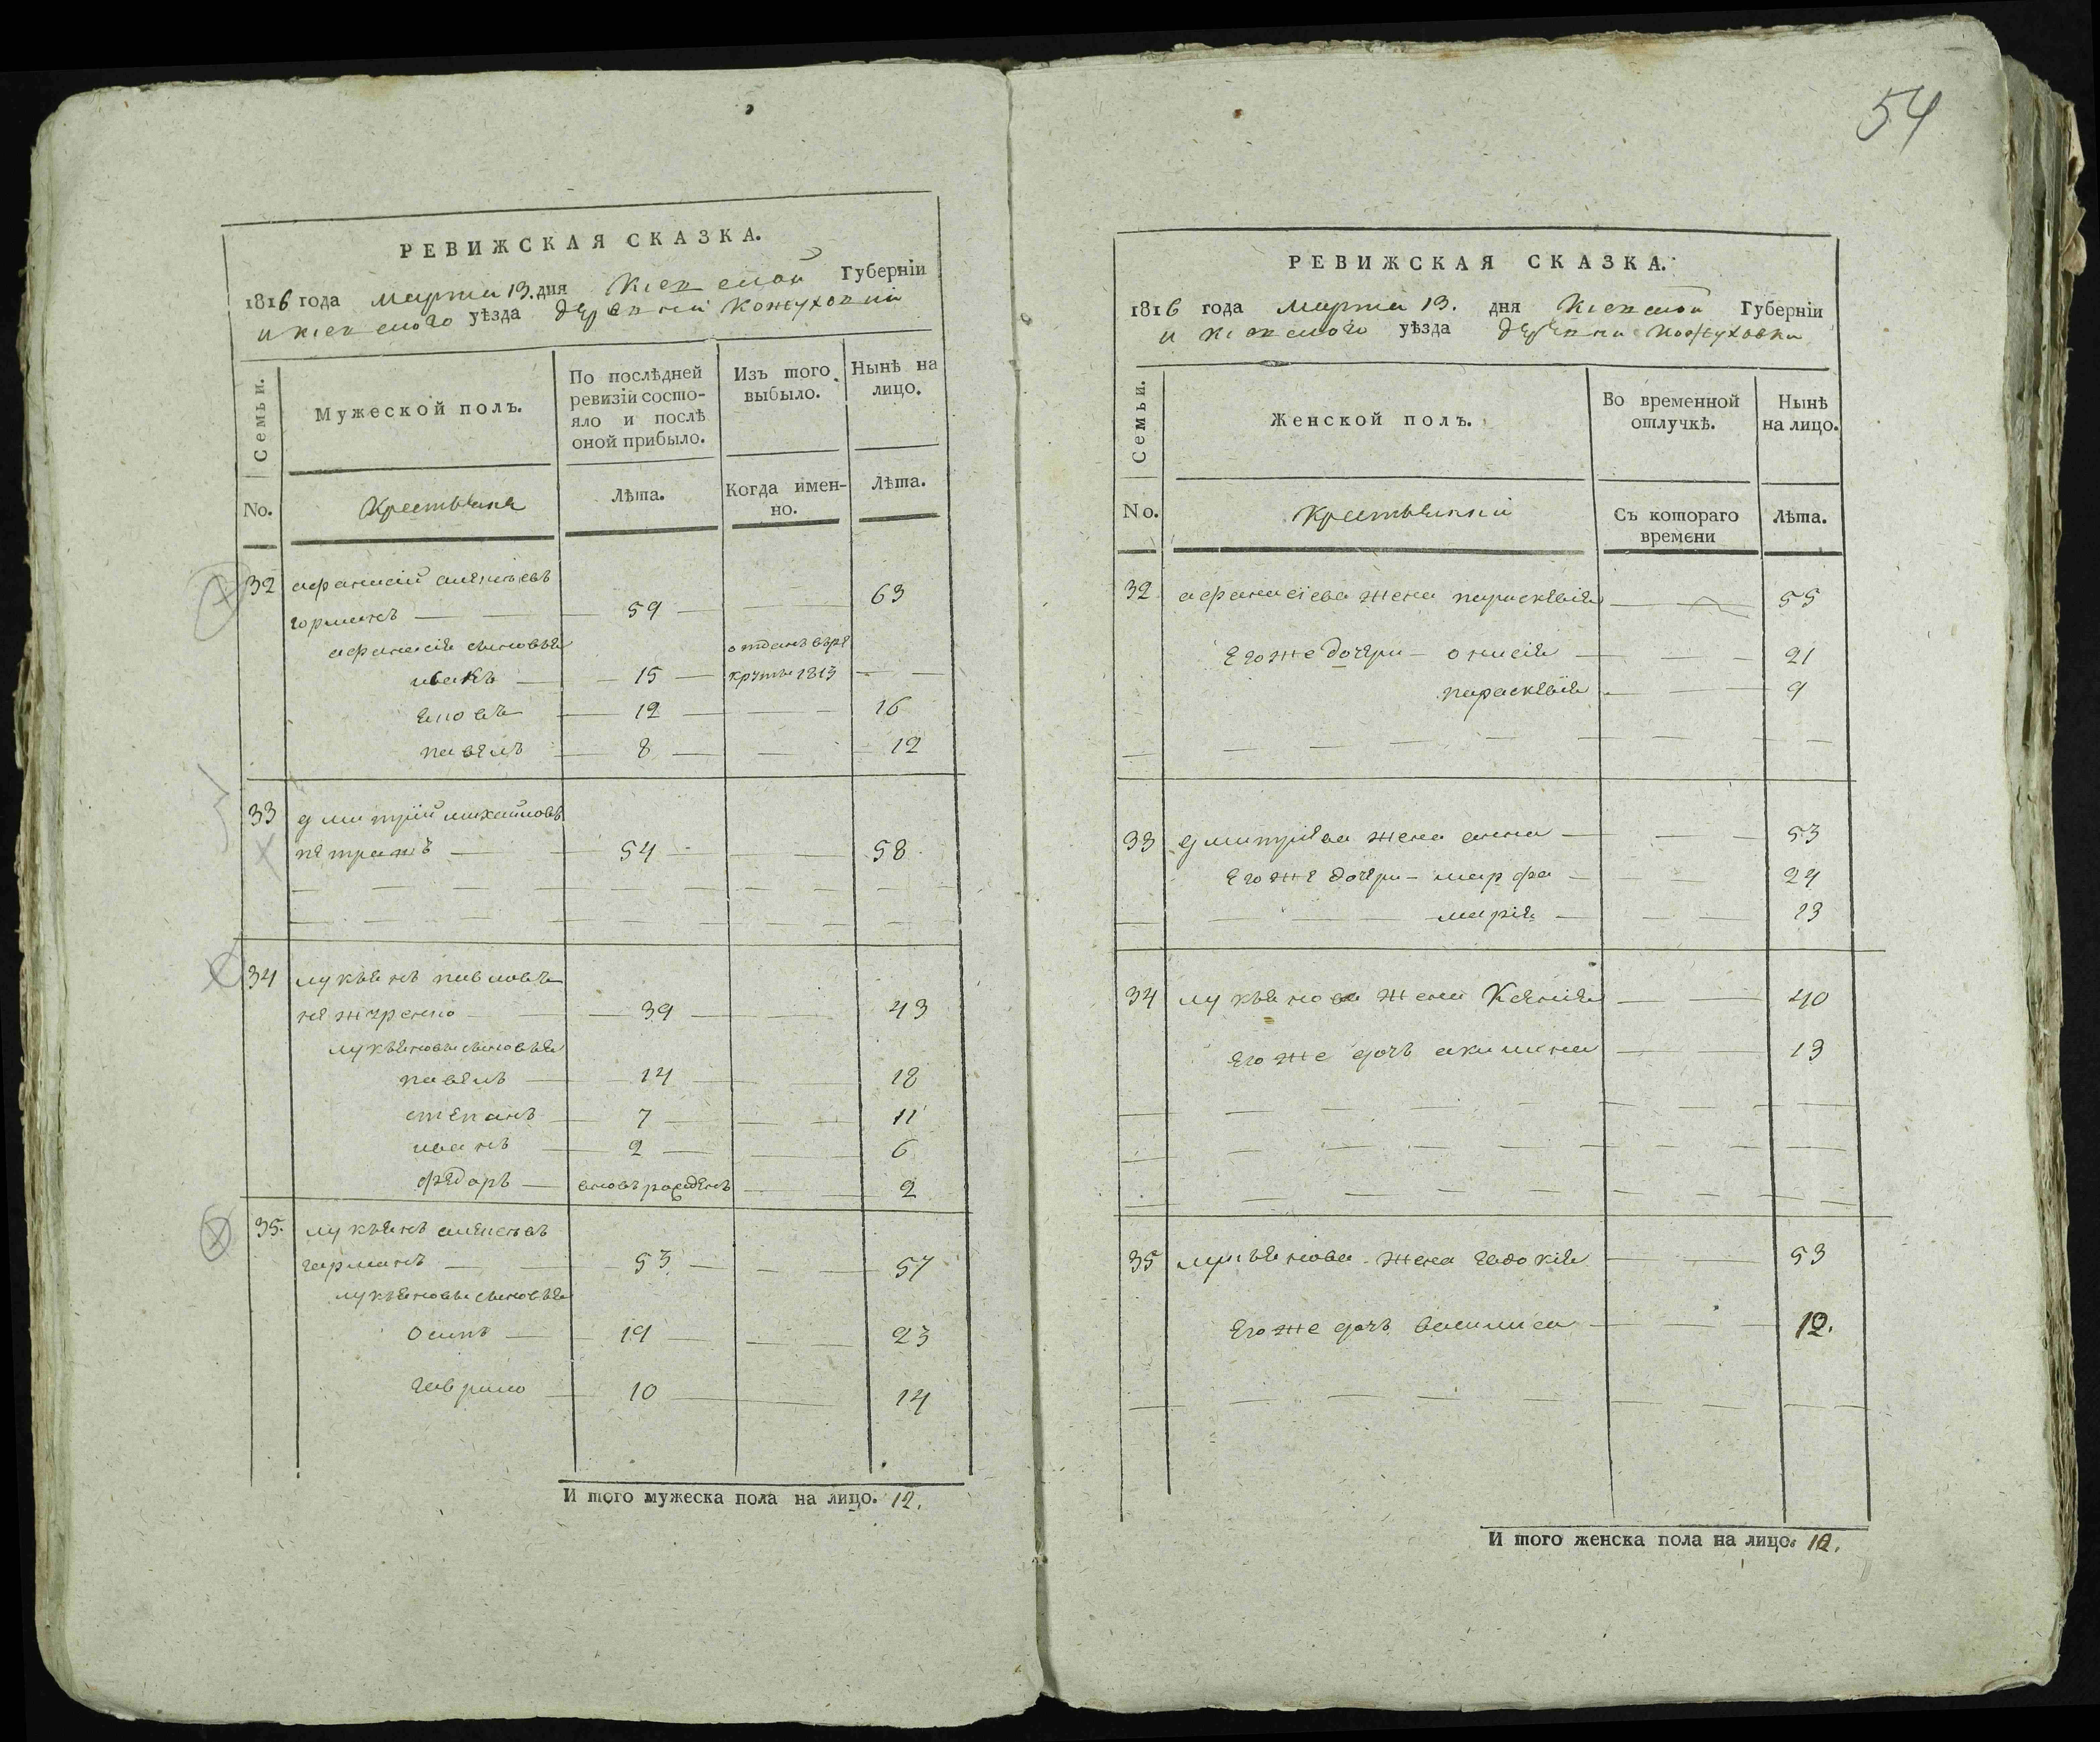 54
РЕВИЖСКАЯ СКАЗКА.
1816 года марта 13. дня Кіевской Губерніи
и кіевского уѣзда деревни Кожуховки
Семьи.
Мужеской полъ.
По послѣдней ревизіи состояло и послѣ оной прибыло.
Изъ того выбыло.
Нынѣ на лицо.
No.
Крестьяне
Лѣта.
Когда именно.
Лѣта.
32 афанасій алексѣевъ
горманъ — 59 — 63
афанасія сыновья отданъ въре
иванъ — 15 — круты 1813 —
яковъ — 12 — 16
павелъ — 8 — 12
33 дмитрій михайловъ
петранъ — 54 — 58
34 лукьянъ павловъ
— 39 — 43
лукьяновы сыновья
павелъ — 14 — 18
степанъ — 7 — 11
иванъ — 2 — 6
федоръ — вновь рожденъ — 2
35. лукьянъ алексѣевъ
гарманъ — 53 — 57
лукьяновы сыновья
осипъ — 19 — 23
гаврило — 10 — 14
И того мужеска пола на лицо. 12.
РЕВИЖСКАЯ СКАЗКА.
1816 года марта 13. дня Кіевской Губерніи
и кіевского уѣзда деревни кожуховки
Семьи.
Женской полъ.
Во временной отлучкѣ.
Нынѣ на лицо.
No.
Крестьянки
Съ котораго времени
Лѣта.
32 афанасіева жена параскевія — 55
Его же дочери — онисія — 21
параскевія — 9
33 дмитріева жена анна — 53
Его же дочери — марфа — 24
марія — 13
34 лукьянова жена Ксенія — 40
Его же дочь акилина — 13
35 лукьянова жена евдокія — 53
Его же дочь василиса — 12.
И того женска пола на лицо. 10.